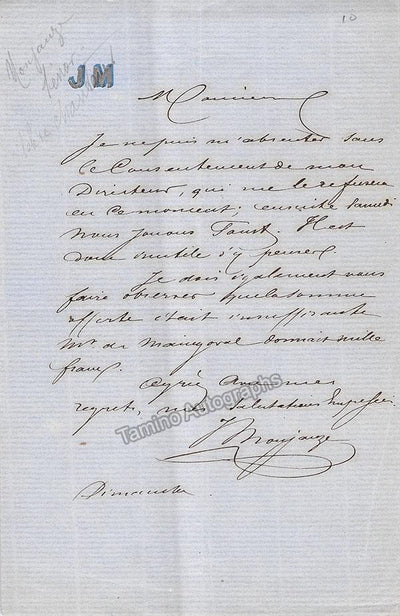 10
Monjauze
ténor
JM
Monsieur
Je ne puis m'absenter sans
le Consentement de mon
Directeur, qui me le refusera
en ce moment; ensuite Samedi
nous jouons Faust. Il est
donc inutile d'y penser.
Je dois également vous
faire observer que la somme
offerte était insuffisante
Mr de donnait mille
francs.
Agréez avec mes
regrets, mes Salutations Empressées
J Monjauze
Dimanche
Tamino Autographs